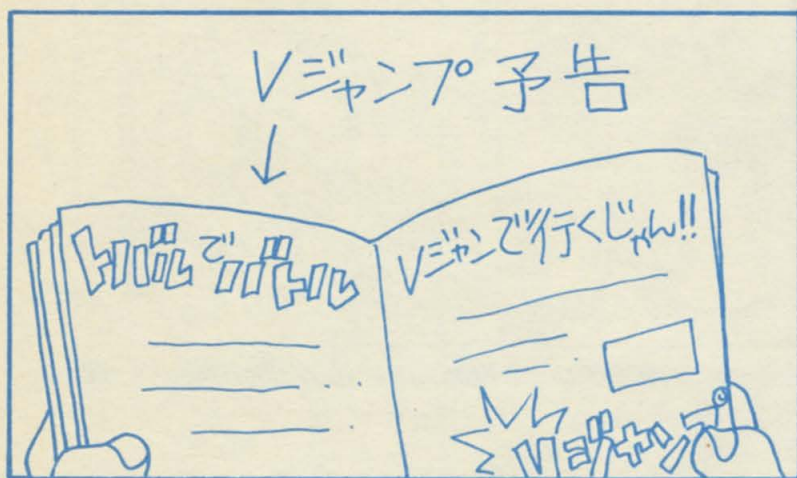 Vジャンプ予告
トバルでバトル
Vジャンで行くじゃん!!
Vジャンプ